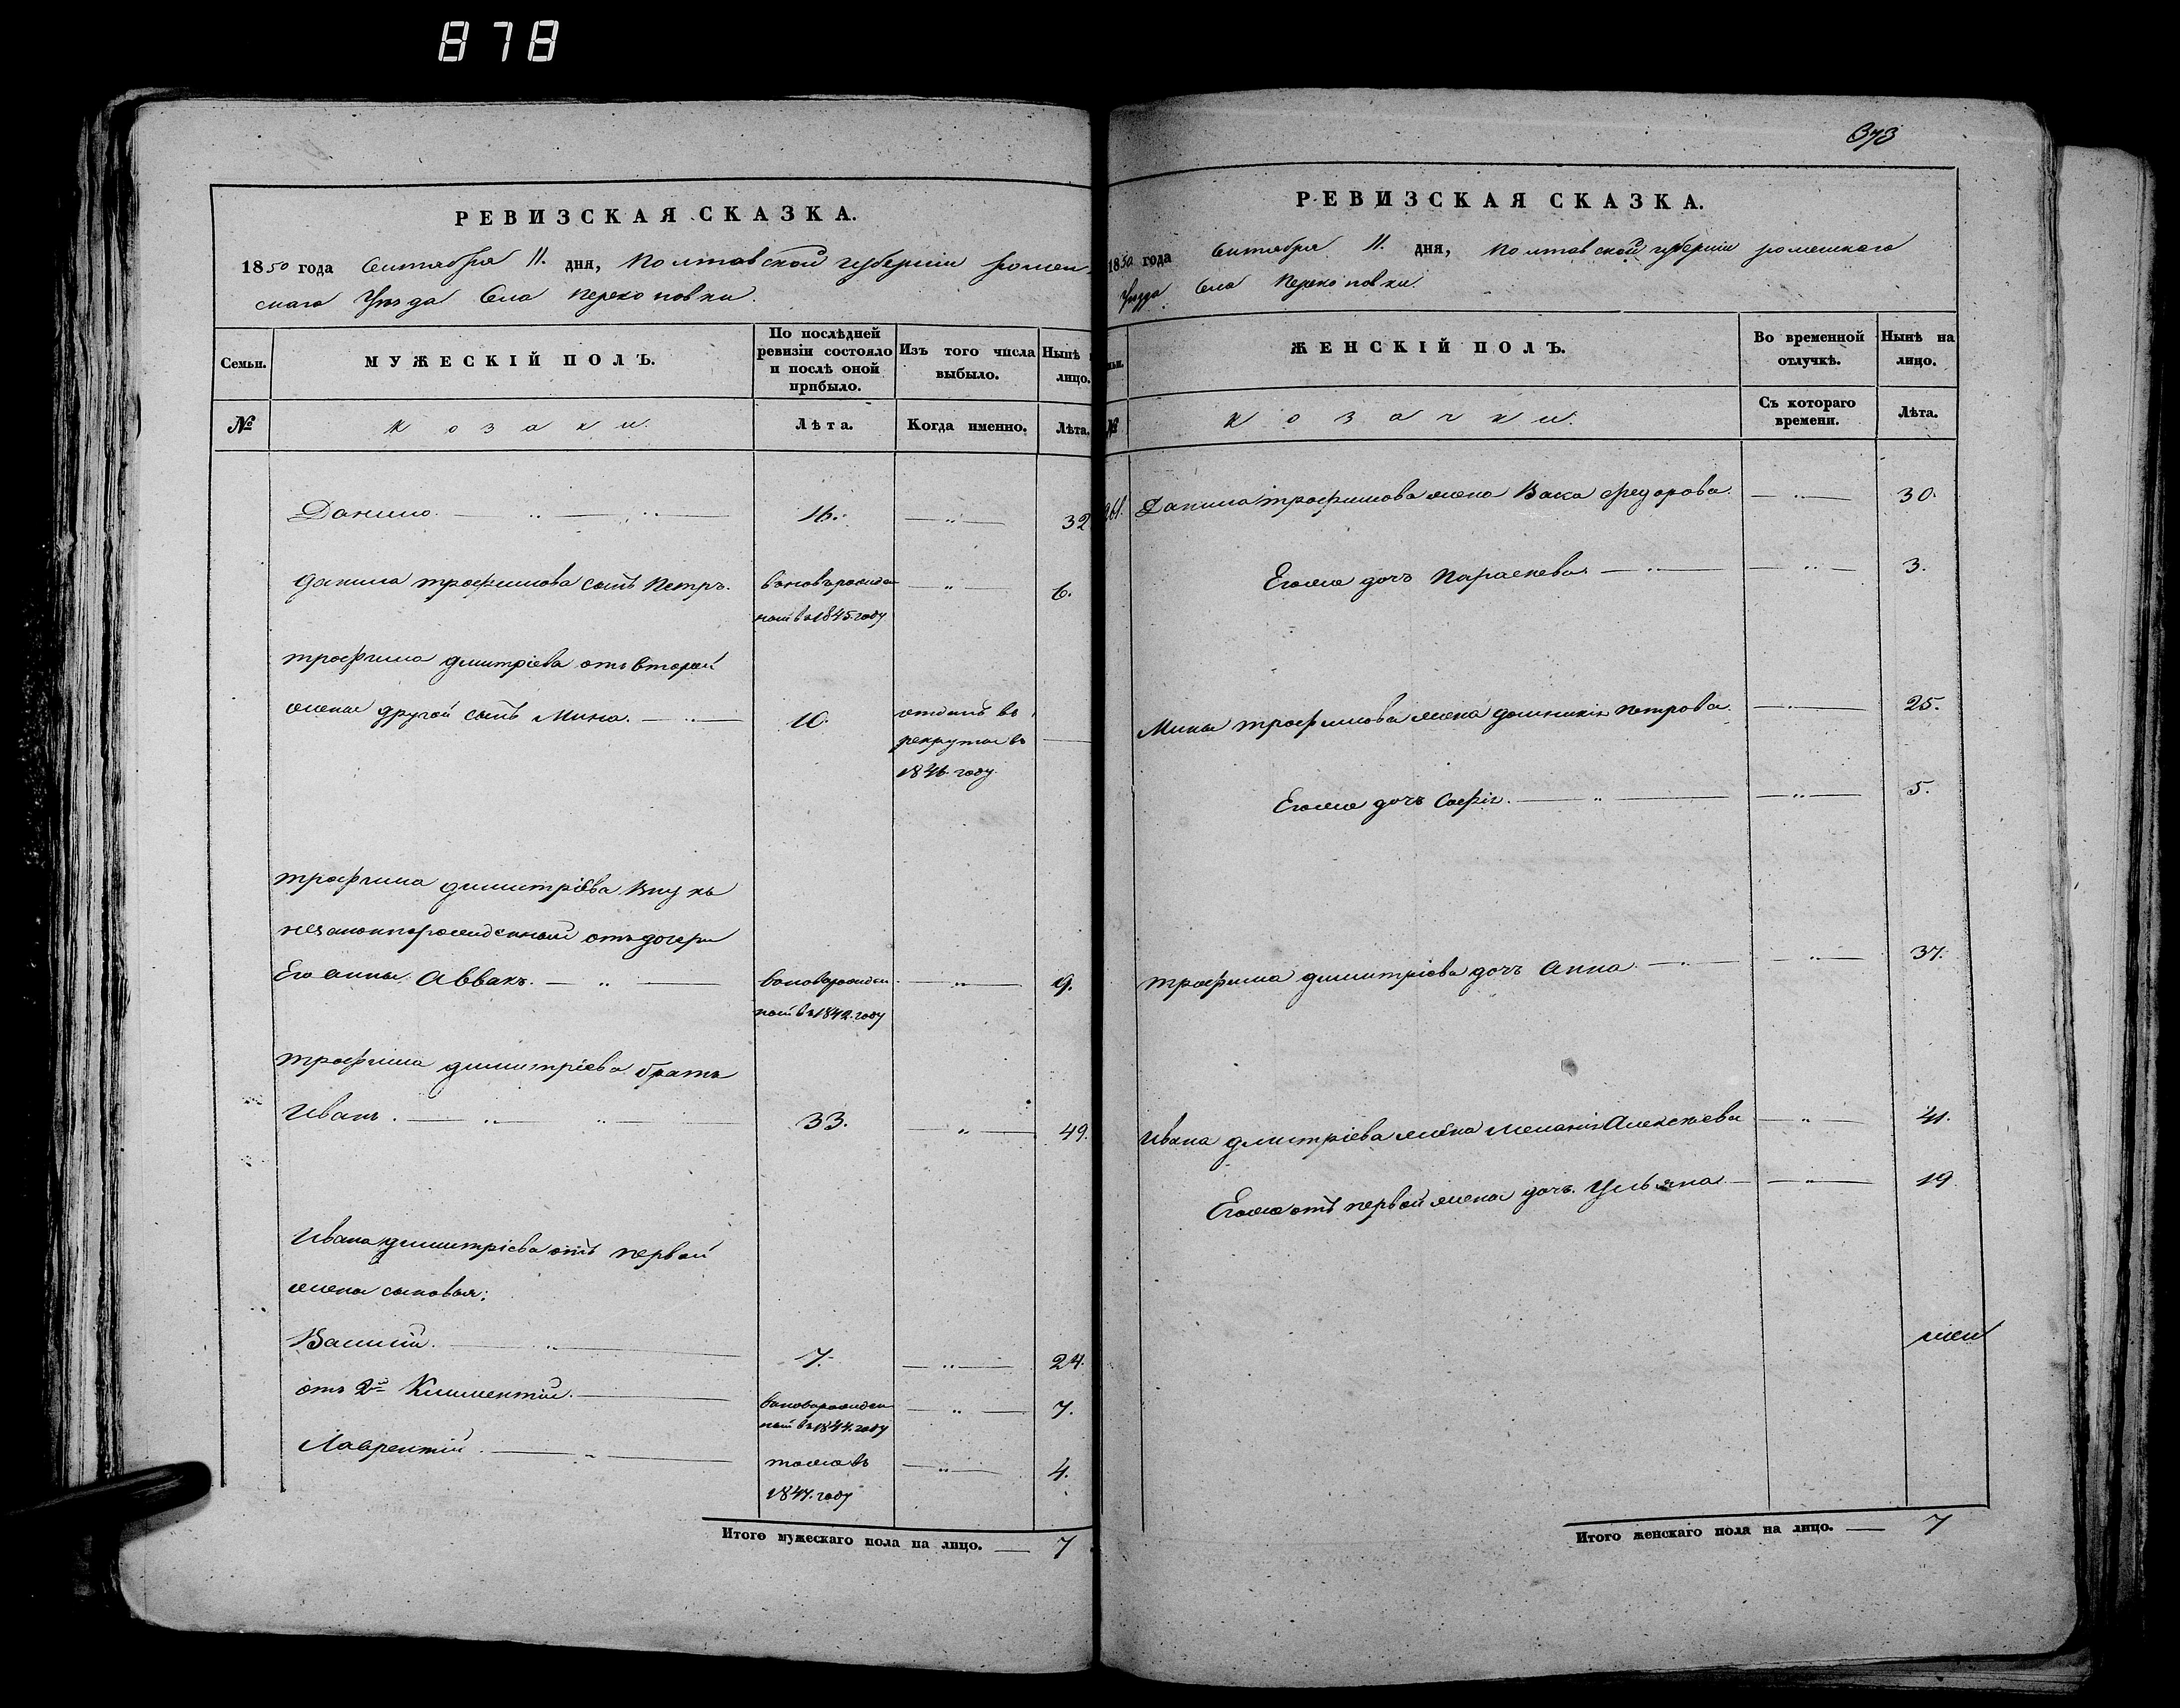 878
РЕВИЗСКАЯ СКАЗКА.
1850 года Сентября 11. дня, Полтавской губерніи ромен
скаго Уезда Села Перекоповки.
Семьи.
МУЖЕСКІЙ ПОЛЪ.
По послѣдней
ревизіи состояло
и послѣ оной
прибыло.
Изъ того числа
выбыло.
Нынѣ
лицо.
№
козаки.
Лѣта.
Когда именно.
Лѣта.
Данило. 16. 32
Данила трофимова сынъ Петръ. 6.
въ 1845 году
трофима дмитріева отъ второй
жены другой сынъ Мина. 10. отданъ въ
рекруты въ
1846 году.
трофима димитріева внукъ
незаконнорожденный отъ дочери
Его анны Аввакъ. 9.
въ 1842 году
трофима димитріева братъ
Иванъ. 33. 49.
Ивана димитріева отъ первой
жены сыновья:
Василій. 7. 24.
отъ 2й Климентій. 7.
въ 1844 году
Лаврентій. тожъ въ 4.
1847. году
Итого мужескаго пола на лицо. 7
673
РЕВИЗСКАЯ СКАЗКА.
1850 года Сентября 11. дня, Полтавской губерніи роменскаго
Уезда Села Перекоповки.
ЖЕНСКІЙ ПОЛЪ.
Во временной
отлучкѣ.
Нынѣ на
лицо.
№
козачки.
Съ котораго
времени.
Лѣта.
261. Данила трофимова жена Васа федорова. 30.
Егоже дочь Параскева 3.
Мины трофимова жена домникія петрова. 25.
Егоже дочь Софія. 5.
трофима димитріева дочь Анна. 37.
Ивана дмитріева жена меланія Алексѣева 41.
Егоже отъ первой жены дочь Ульяна 19
Итого женскаго пола на лицо. 7